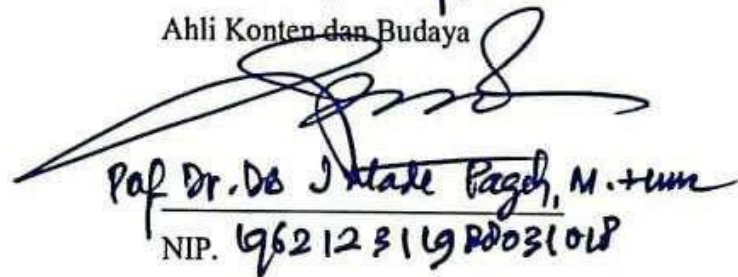 Ahli Konten dan Budaya
Prof Dr. Drs I Made Pageh, M. Hum
NIP. 196212311988031018